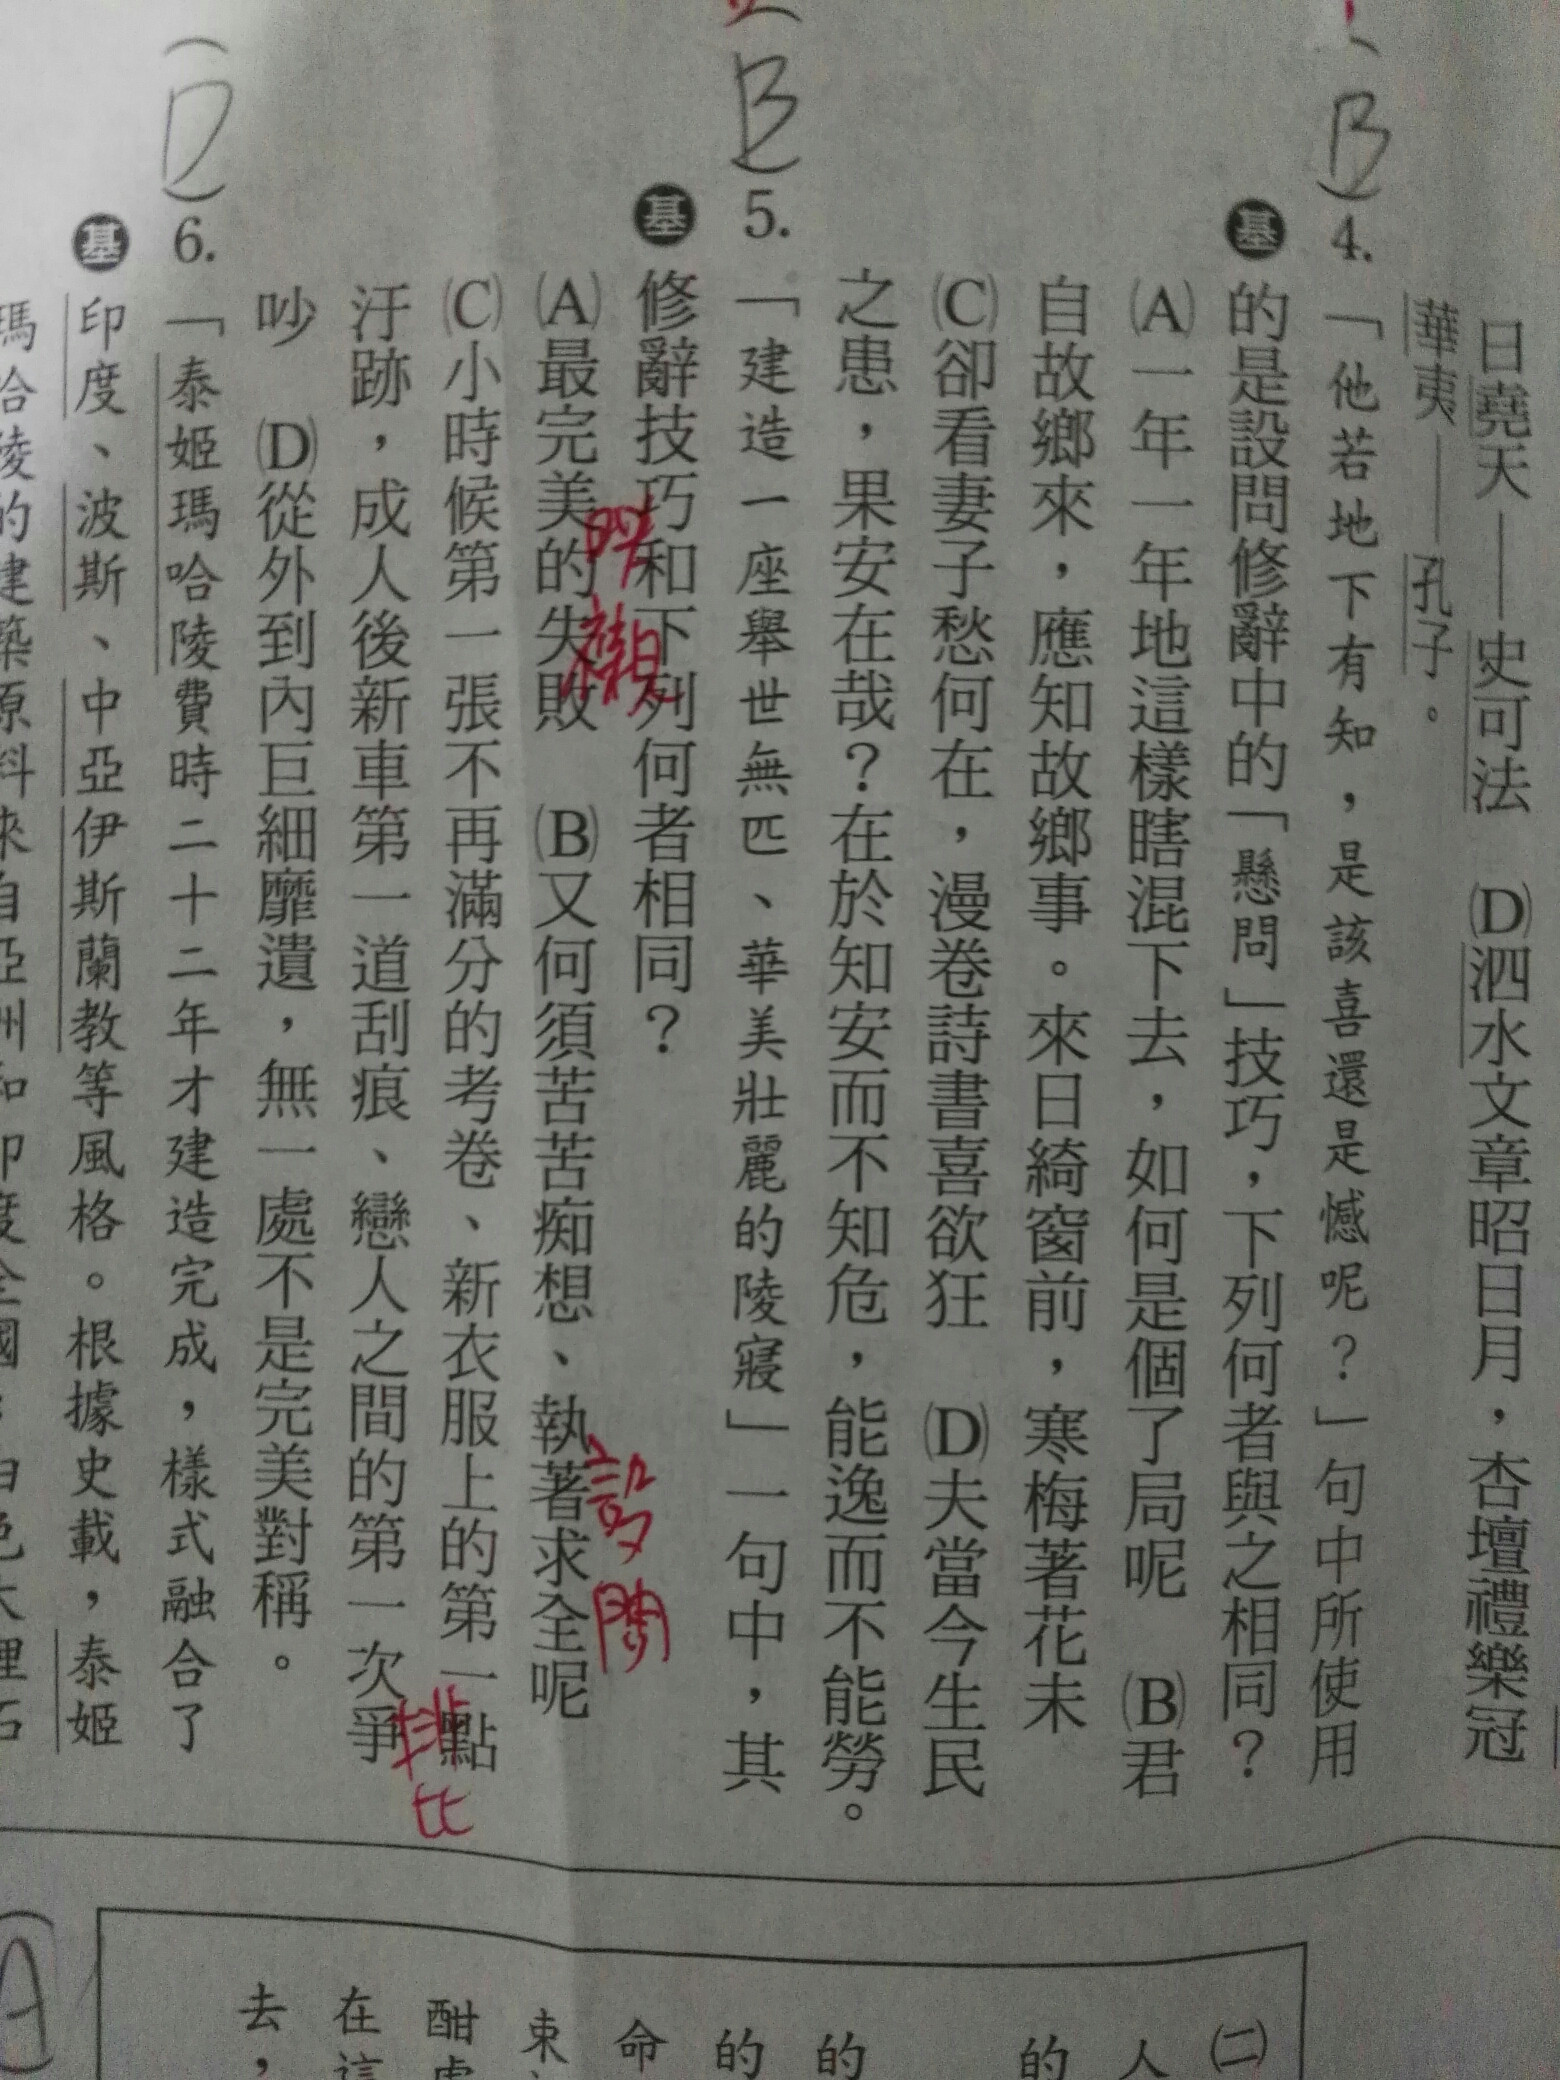 日堯天——史可法　(D)泗水文章昭日月，杏壇禮樂冠
華夷——孔子。
(B) 4.「他若地下有知，是該喜還是憾呢？」句中所使用
基 的是設問修辭中的「懸問」技巧，下列何者與之相同？
(A)一年一年地這樣瞎混下去，如何是個了局呢　(B)君
自故鄉來，應知故鄉事。來日綺窗前，寒梅著花未
(C)卻看妻子愁何在，漫卷詩書喜欲狂　(D)夫當今生民
之患，果安在哉？在於知安而不知危，能逸而不能勞。
(B) 5.「建造一座舉世無匹、華美壯麗的陵寢」一句中，其
基 修辭技巧和下列何者相同？
映襯
設問
(A)最完美的失敗　(B)又何須苦苦痴想、執著求全呢
(C)小時候第一張不再滿分的考卷、新衣服上的第一點
排比
汙跡，成人後新車第一道刮痕、戀人之間的第一次爭
吵　(D)從外到內巨細靡遺，無一處不是完美對稱。
(D) 6.「泰姬瑪哈陵費時二十二年才建造完成，樣式融合了
基 印度、波斯、中亞伊斯蘭教等風格。根據史載，泰姬
瑪哈陵的建築原料來自亞洲和印度全國：白色大理石
A
㈡
人
的
的
的
命
束
酣
在這
去，